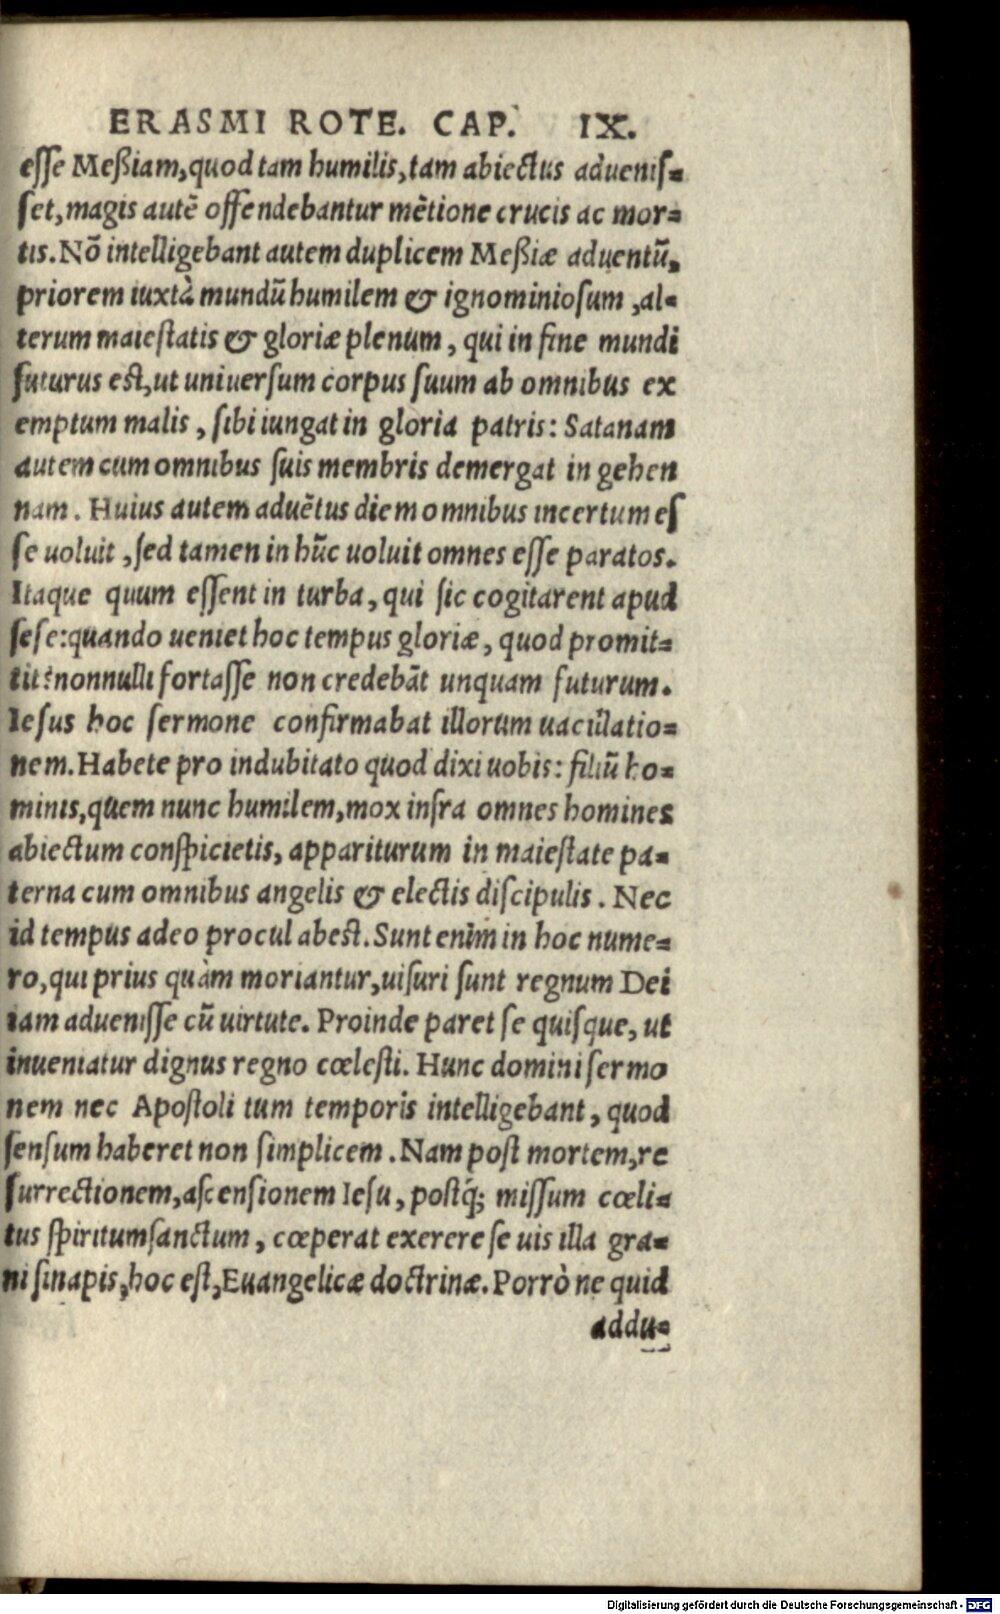 ERASMI ROTE. CAP. IX.
esse Meßiam, quod tam humilis, tam abiectus aduenis-
set, magis autē offendebantur mētione crucis ac mor-
tis. Nō intelligebant autem duplicem Meßiæ aduentū,
priorem iuxtà mundū humilem & ignominiosum, al-
terum maiestatis & gloriæ plenum, qui in fine mundi
futurus est, ut uniuersum corpus suum ab omnibus ex
emptum malis, sibi iungat in gloria patris: Satanam
autem cum omnibus suis membris demergat in gehen
nam. Huius autem aduētus diem omnibus incertum es
se uoluit, sed tamen in hūc uoluit omnes esse paratos.
Itaque quum essent in turba, qui sic cogitarent apud
sese: quando ueniet hoc tempus gloriæ, quod promit-
tit? nonnulli fortasse non credebāt unquam futurum.
Iesus hoc sermone confirmabat illorum uacillatio-
nem. Habete pro indubitato quod dixi uobis: filiū ho-
minis, quem nunc humilem, mox infra omnes homines
abiectum conspicietis, appariturum in maiestate pa-
terna cum omnibus angelis & electis discipulis. Nec
id tempus adeo procul abest. Sunt enim in hoc nume-
ro, qui prius quàm moriantur, uisuri sunt regnum Dei
iam aduenisse cū uirtute. Proinde paret se quisque, ut
inueniatur dignus regno cœlesti. Hunc domini sermo
nem nec Apostoli tum temporis intelligebant, quod
sensum haberet non simplicem. Nam post mortem, re
surrectionem, ascensionem Iesu, postq́; missum cœli-
tus spiritumsanctum, cœperat exerere se uis illa gra-
ni sinapis, hoc est, Euangelicæ doctrinæ. Porrò ne quid
addu-
Digitalisierung gefördert durch die Deutsche Forschungsgemeinschaft - DFG